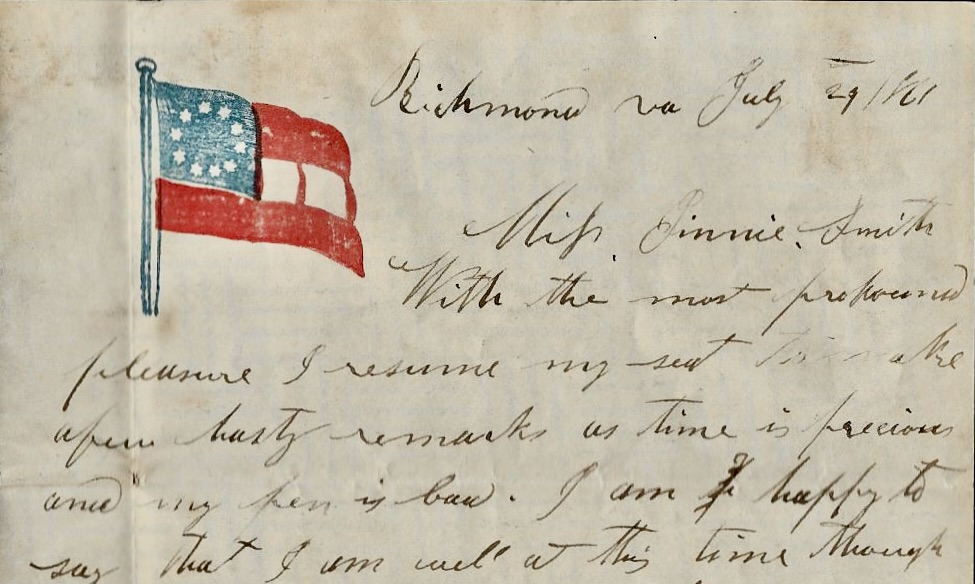 Richmond va July 29 1861
Miss. Jinnie. Smith
With the most profound
pleasure I resume my seat to make
afew hasty remarks as time is precious
and my pen is bad. I am happy to
say that I am well at this time though